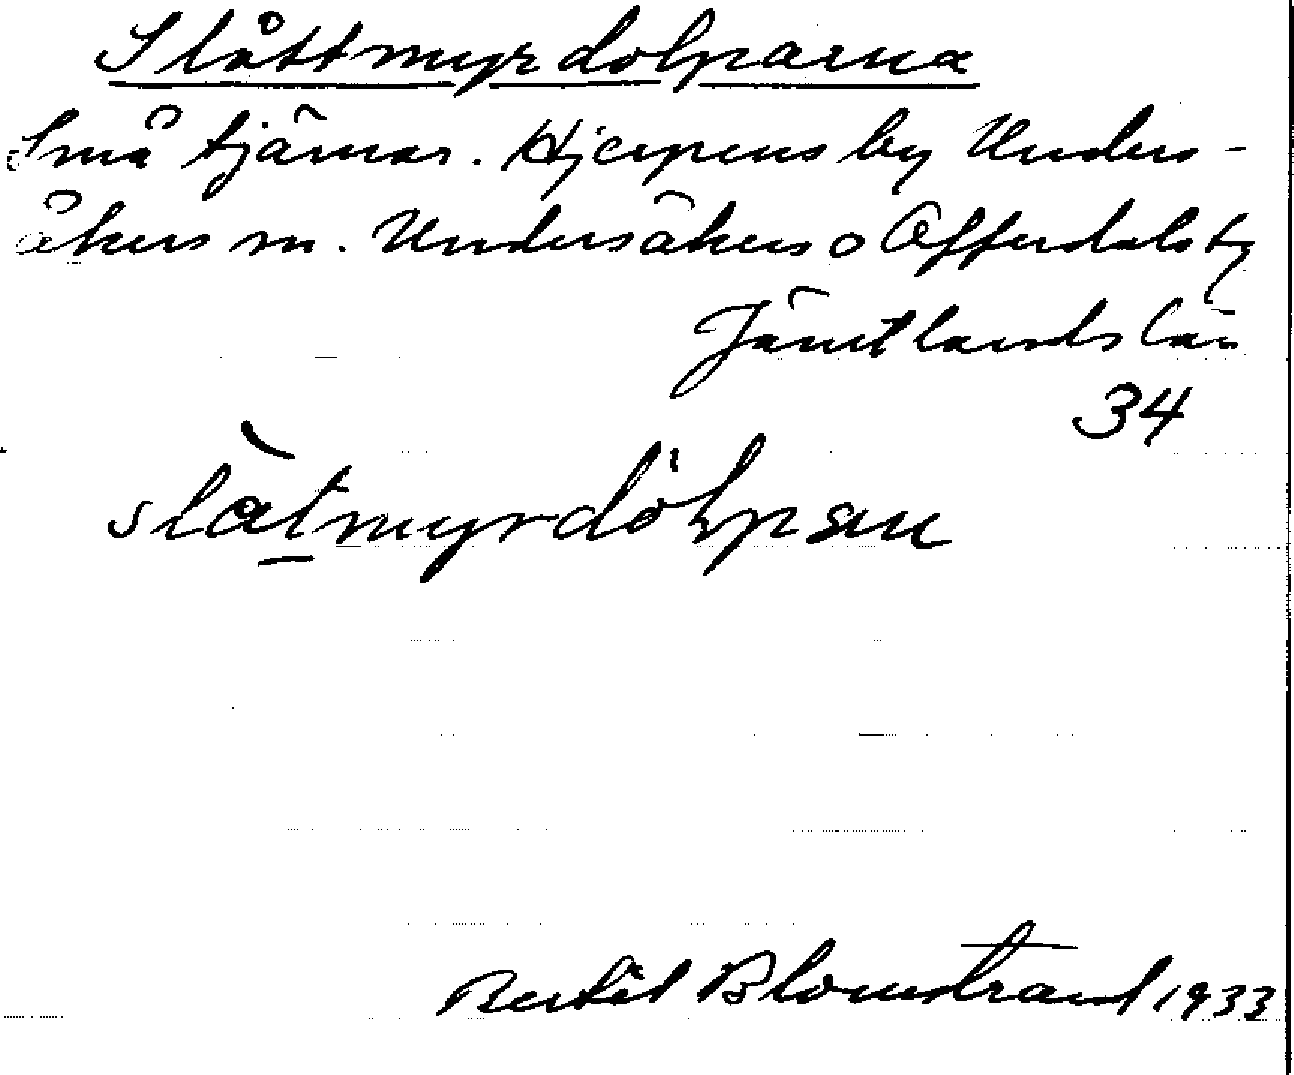 Slåttmyrdolparna
Små tjärnar. Hjerpens by Unders-
åkers sn. Undersåkers o Offerdals tg
Jämtlands län
34
slåtmyrdölpan
Bertil Blomstrand 1933